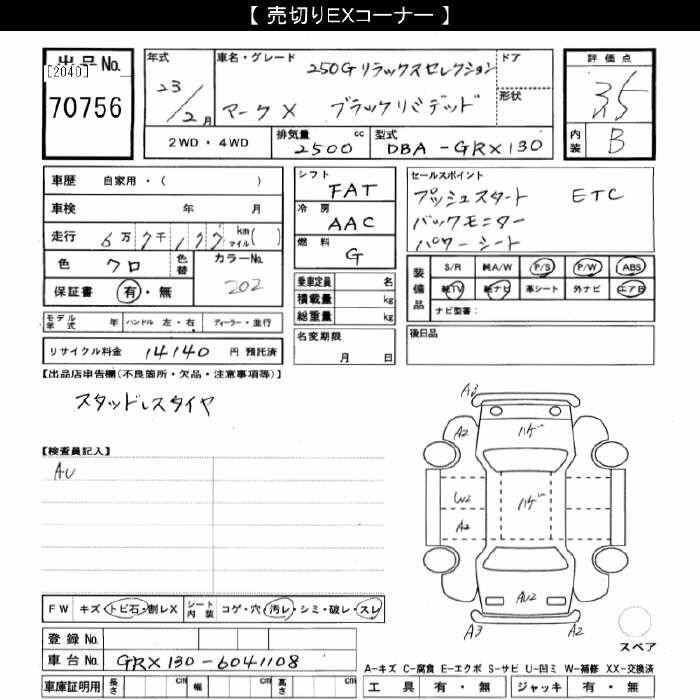 【 売切りEXコーナー 】
出品No.
[2040]
70756
年式
23/2月
車名・グレード
250G リラックスセレクション
マークX ブラックリミテッド
ドア
形状
評価点
3.5
内装
B
2WD ・ 4WD
排気量
2500 cc
型式
DBA - GRX130
車歴 自家用・( )
車検 年 月
走行 6万7千177 km マイル( )
色 クロ
色替
カラーNo.
202
保証書 有・無
シフト
FAT
冷房
AAC
燃料
G
乗車定員 名
積載量 kg
総重量 kg
セールスポイント
プッシュスタート ETC
バックモニター
パワーシート
装備品
S/R 純A/W P/S P/W ABS
純TV 純ナビ 革シート 外ナビ エアB
ナビ型番:
モデル年式 年 ハンドル 左・右 ディーラー・並行
リサイクル料金 14140 円 預託済
名変期限
月 日
後日品
【出品店申告欄(不良箇所・欠品・注意事項等)】
スタッドレスタイヤ
【検査員記入】
AU
A3
A2
ハゲ
W2
ハゲ
A2
AU2
A3
A2
スペア
FW キズ・トビ石・割レX シート内装 コゲ・穴・汚レ・シミ・破レ・スレ
登録 No.
車台 No. GRX130-6041108
A-キズ C-腐食 E-エクボ S-サビ U-凹ミ W-補修 XX-交換済
車庫証明用 長さ cm 幅 cm 高さ cm
工具 有・無 ジャッキ 有・無